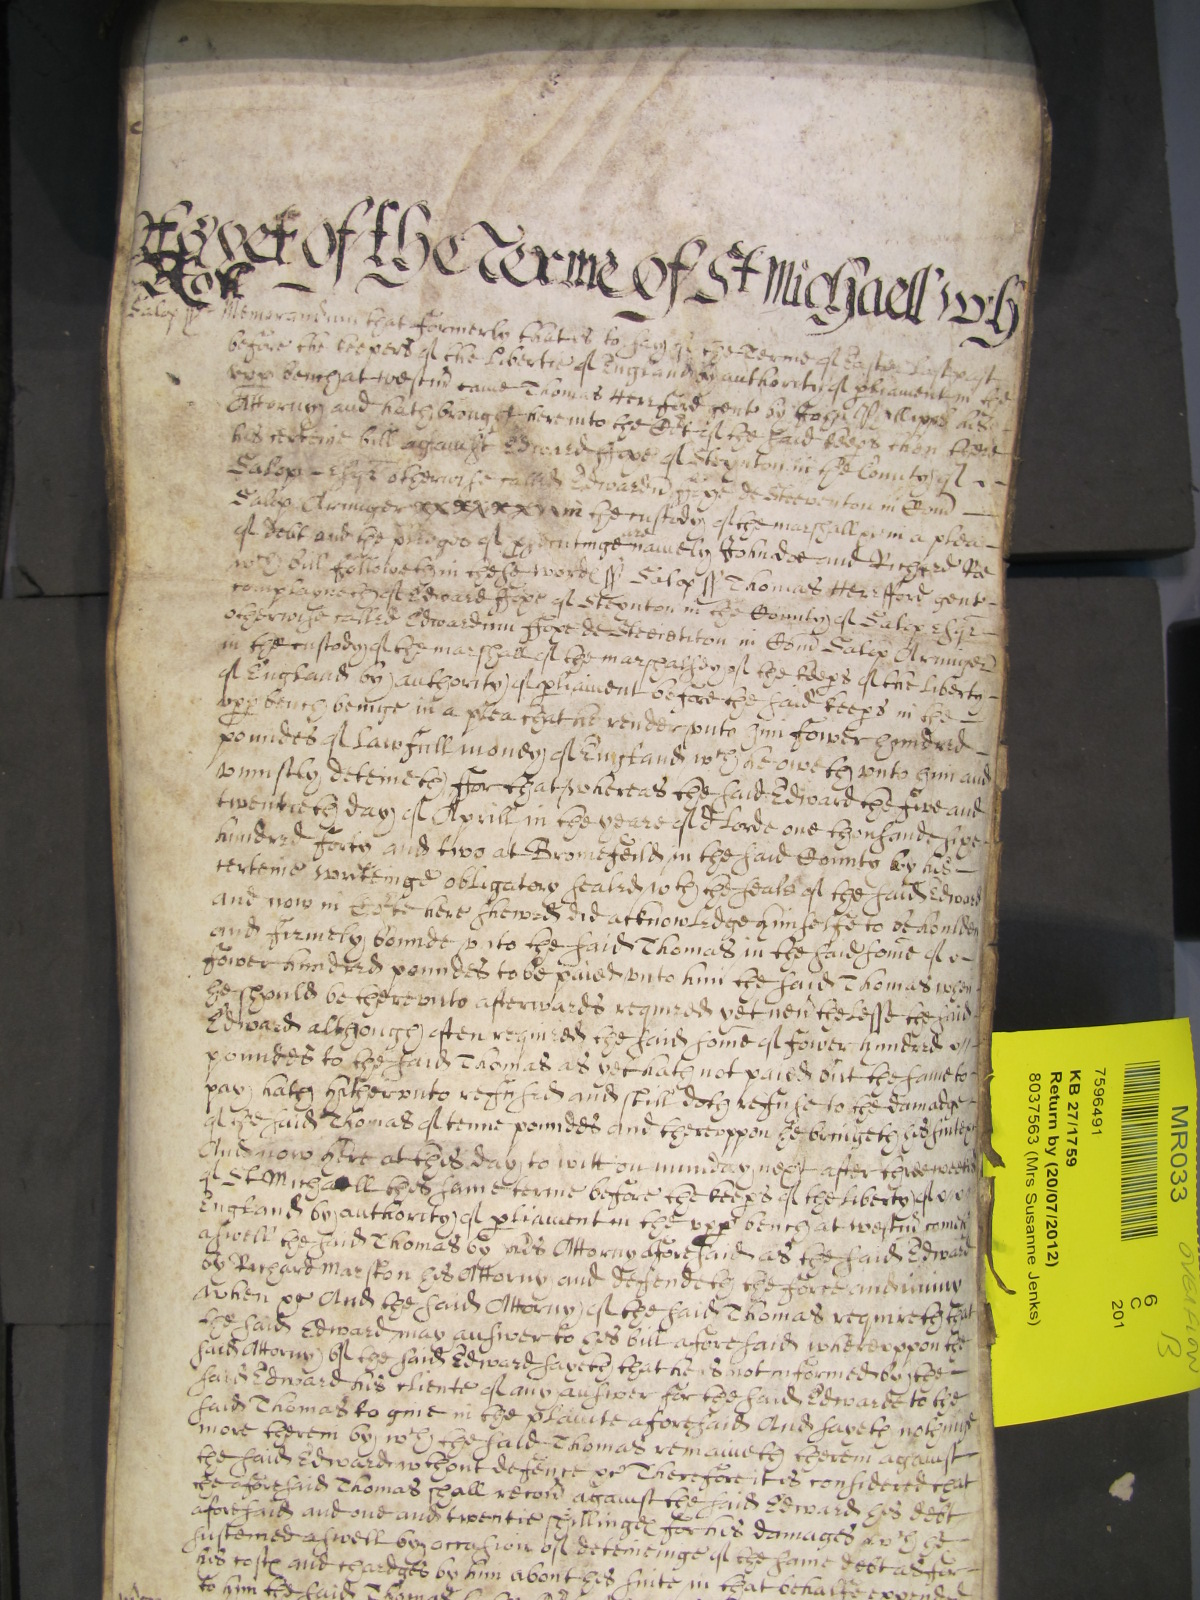 Yet of the Terme of St Michaell 1651
Roll
Salop ss Memorandum that formerly that is to say of the Terme of Easter last past
before the keepers of the Libertie of England by authoritie of pliament in the
upp bench at westm came Thomas Herrfford gent by John Phillipps his
Attorny and hath brought here into the Cort of the said keeps then there
his certeine bill against Edward ffox of Steynton in the County of
Salop Esqr otherwise called Edwardu ffoxe de Steeventon in Com
Salop Armiger in the custody of the marshall &c in a plea
of debt and the pledges of prosecutinge are namely John doe and Richard Roe
wch bill followeth in these wordes ss Salop ss Thomas Herrfford gent
complayneth of Edward ffoxe of Steynton in the County of Salop Esqr
otherwise called Edwardum ffoxe de Steeventon in Com Salop Armiger
in the custody of the marshall of the marshalsey of the keeps of the Liberty
of England by authority of pliament before the said keeps in the
upp bench beinge in a plea that he render unto him fower hundred
poundes of Lawfull money of England wch he oweth unto him and
uniustly deteineth ffor that whereas the said Edward the five and
twentieth day of Aprill in the yeare of or Lorde one thousand sixe
hundred forty and two at Bromefeild in the said County by his
certeine writeinge obligatory sealed wth the seale of the said Edward
and now in Corte here shewed did acknowledge himselfe to be houlden
and firmely bounde unto the said Thomas in the said some of
fower hundred poundes to be paied unto him the said Thomas when
he should be thereunto afterwards required yet nevthelesse the said
Edward although often required the said some of fower hundred
poundes to the said Thomas as yet hath not paied but the same to
pay hath hitherunto refused and still doth refuse to the damadge
of the said Thomas of tenne poundes and thereuppon he bringeth his suite &c
And now here at this day to witt on munday next after three weekes
of St Michaell this same terme before the keeps of the Liberty of
England by authority of pliament in the upp bench at westm cometh
aswell the said Thomas by his Attorny aforesaid as the said Edward
by Richard Marston his Attorny and defendeth the force and iniury
when &c And the said Attorny of the said Thomas requireth that
the said Edward may answer to his bill aforesaid whereuppon the
said Attorny of the said Edward sayeth that he is not informed by the
said Edward his cliente of any answer for the said Edwarde to the
said Thomas to give in the plainte aforesaid And sayeth nothinge
more therein by wch the said Thomas remaineth therein against
the said Edward without defence &c Therefore it is considered that
the aforesaid Thomas shall recovr against the said Edward his debt
aforesaid and one and twentie shillinges for his damages wch he
susteined aswell by occasion of deteininge of the same debt as for
his costs and chardges by him about his suite in that behalfe expended
to him the said Thomas
MR033
7596491
KB 27/1759
Return by (20/07/2012)
8037563 (Mrs Susanne Jenks)
6
C
201